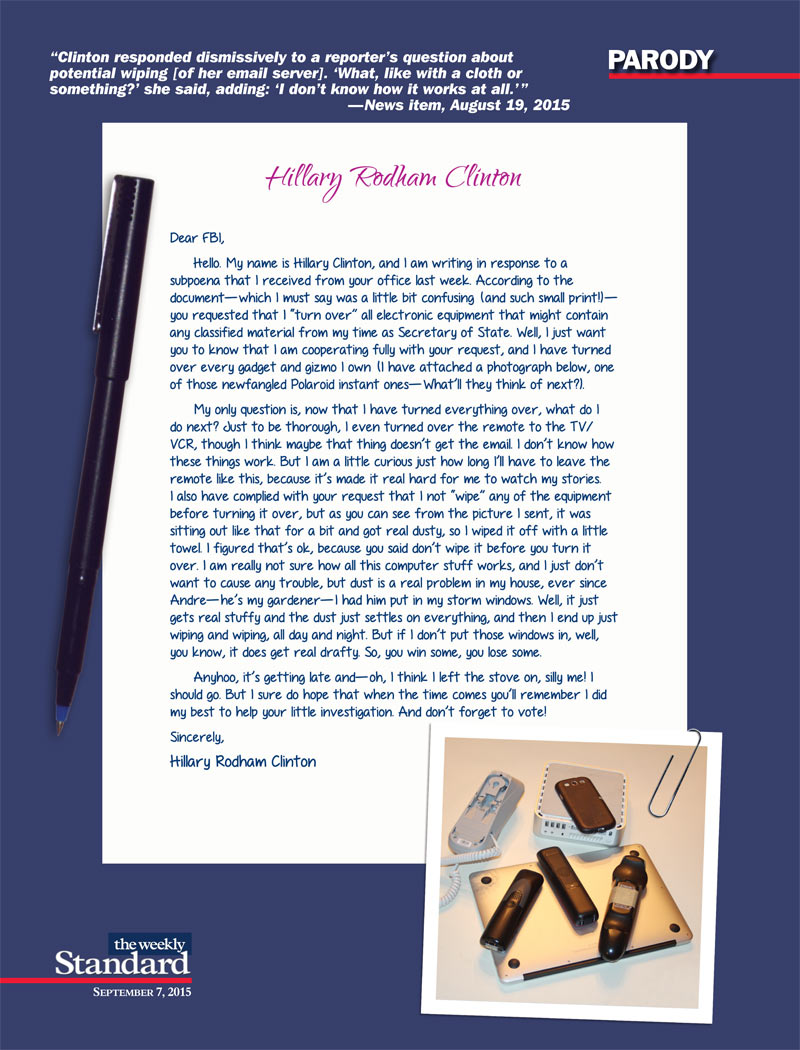 “Clinton responded dismissively to a reporter’s question about
potential wiping [of her email server]. ‘What, like with a cloth or
something?’ she said, adding: ‘I don’t know how it works at all.’”
—News item, August 19, 2015
PARODY
Hillary Rodham Clinton
Dear FBI,
Hello. My name is Hillary Clinton, and I am writing in response to a
subpoena that I received from your office last week. According to the
document—which I must say was a little bit confusing (and such small print!)—
you requested that I “turn over” all electronic equipment that might contain
any classified material from my time as Secretary of State. Well, I just want
you to know that I am cooperating fully with your request, and I have turned
over every gadget and gizmo I own (I have attached a photograph below, one
of those newfangled Polaroid instant ones—What’ll they think of next?).
My only question is, now that I have turned everything over, what do I
do next? Just to be thorough, I even turned over the remote to the TV/
VCR, though I think maybe that thing doesn’t get the email. I don’t know how
these things work. But I am a little curious just how long I’ll have to leave the
remote like this, because it’s made it real hard for me to watch my stories.
I also have complied with your request that I not “wipe” any of the equipment
before turning it over, but as you can see from the picture I sent, it was
sitting out like that for a bit and got real dusty, so I wiped it off with a little
towel. I figured that’s ok, because you said don’t wipe it before you turn it
over. I am really not sure how all this computer stuff works, and I just don’t
want to cause any trouble, but dust is a real problem in my house, ever since
Andre—he’s my gardener—I had him put in my storm windows. Well, it just
gets real stuffy and the dust just settles on everything, and then I end up just
wiping and wiping, all day and night. But if I don’t put those windows in, well,
you know, it does get real drafty. So, you win some, you lose some.
Anyhoo, it’s getting late and—oh, I think I left the stove on, silly me! I
should go. But I sure do hope that when the time comes you’ll remember I did
my best to help your little investigation. And don’t forget to vote!
Sincerely,
Hillary Rodham Clinton
the weekly
Standard
SEPTEMBER 7, 2015